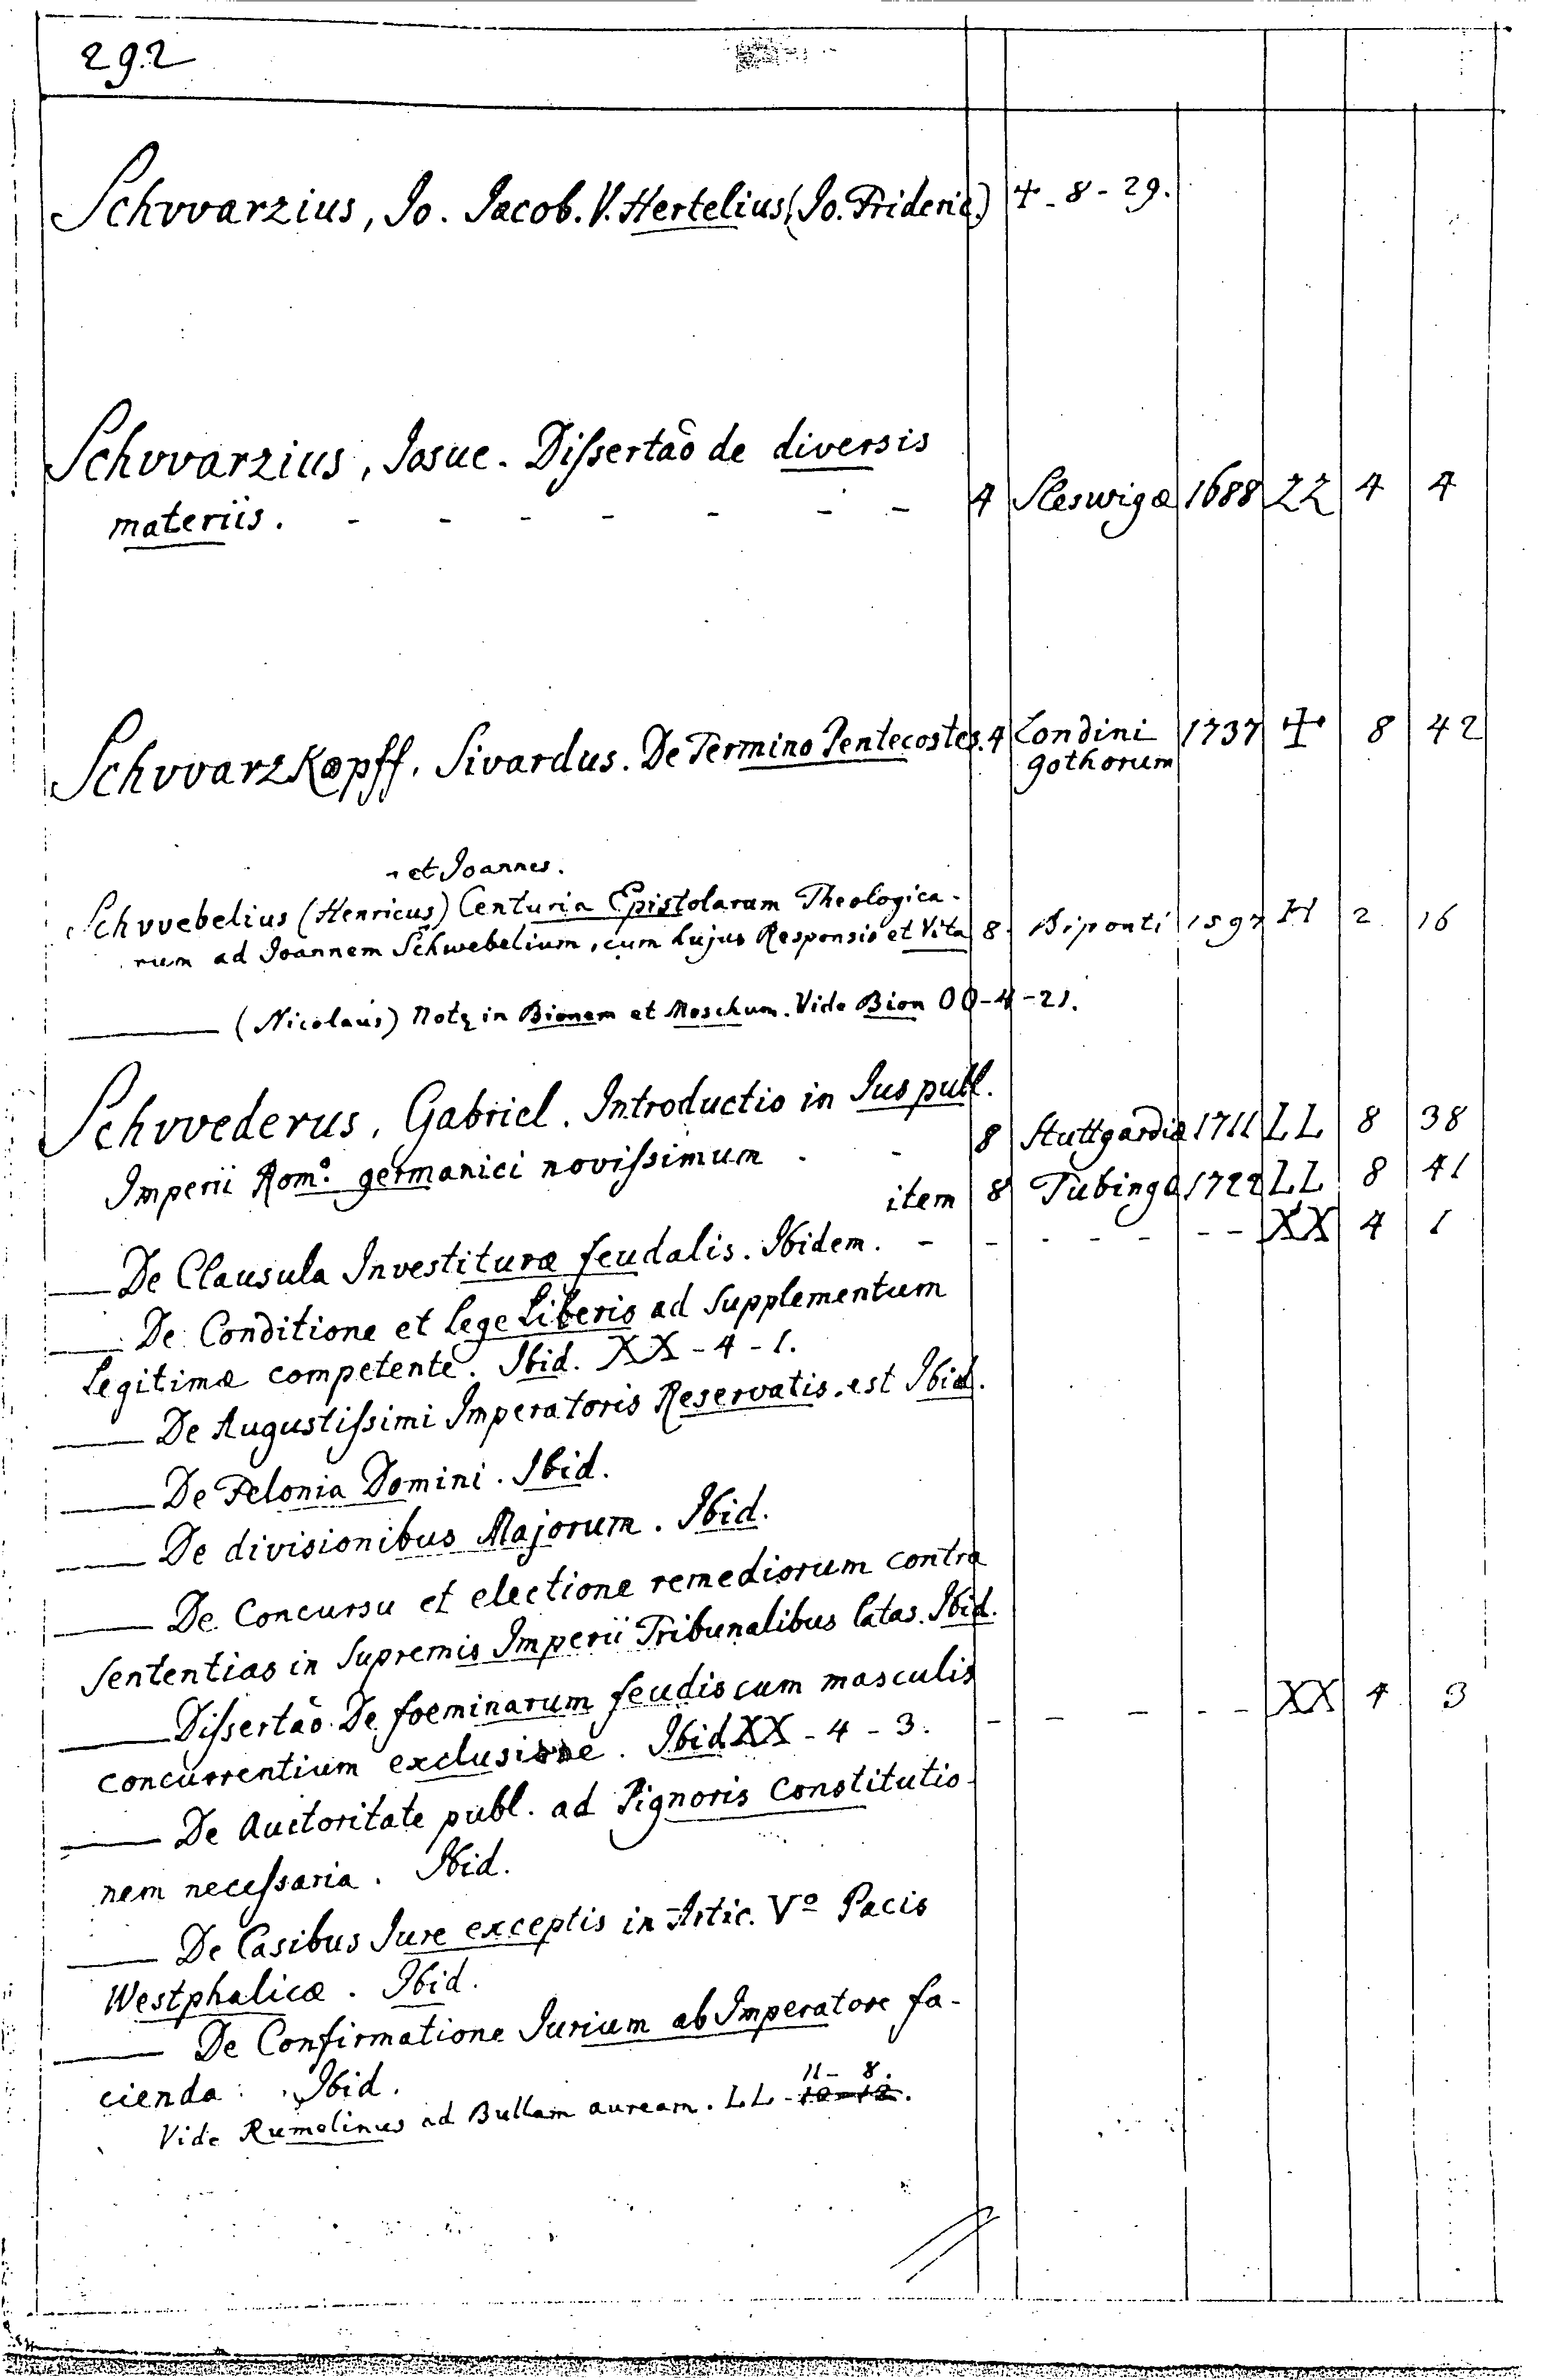 292
Schvvarzius, Io. Iacob. V. Hertelius (Io. Frideric.) ☩ - 8 - 29.
Schvvarzius, Iosue. Dissertaõ de diversis
materiis. - - - - - - - 4 Sleswigæ 1688 ZZ 4 4
SchvvarzKopff, Sivardus. De Termino Pentecostes. 4 Londini 1737 ☩ 8 42
gothorum
et Joannes.
Schvvebelius (Henricus) Centuria Epistolarum Theologica-
rum ad Joannem Schwebelium, cum hujus Responsis et Vita 8. Biponti 1597 H 2 16
——— (Nicolaus) Notę in Bionem et Moschum. Vide Bion OO-4-21.
Schvvederus, Gabriel. Introductio in Ius publ.
Imperii Rom.º germanici novissimum . - 8 Stuttgardiæ 1711 LL 8 38
item 8 Tubingæ 1722 LL 8 41
—— De Clausula Investituræ feudalis. Ibidem. - - - - - - - XX 4 1
—— De Conditione et lege Liberis ad supplementum
legitimæ competente. Ibid. XX - 4 - 1.
—— De Augustissimi Imperatoris Reservatis. est Ibid.
—— De Felonia Domini. Ibid.
—— De divisionibus Majorum. Ibid.
—— De Concursu et electione remediorum contra
sententias in supremis Imperii Tribunalibus latas. Ibid.
—— Dissertaõ De foeminarum feudis cum masculis
concurrentium exclusione. Ibid XX - 4 - 3. - - - - - XX 4 3
—— De Auctoritate publ. ad Pignoris Constitutio-
nem necessaria. Ibid.
—— De Casibus Iure exceptis in Artic. Vº Pacis
Westphalicæ. Ibid.
—— De Confirmatione Iurium ab Imperatore fa-
cienda. Ibid.
11 - 8.
Vide Rumelinus ad Bullam auream. LL - 10 - 12.